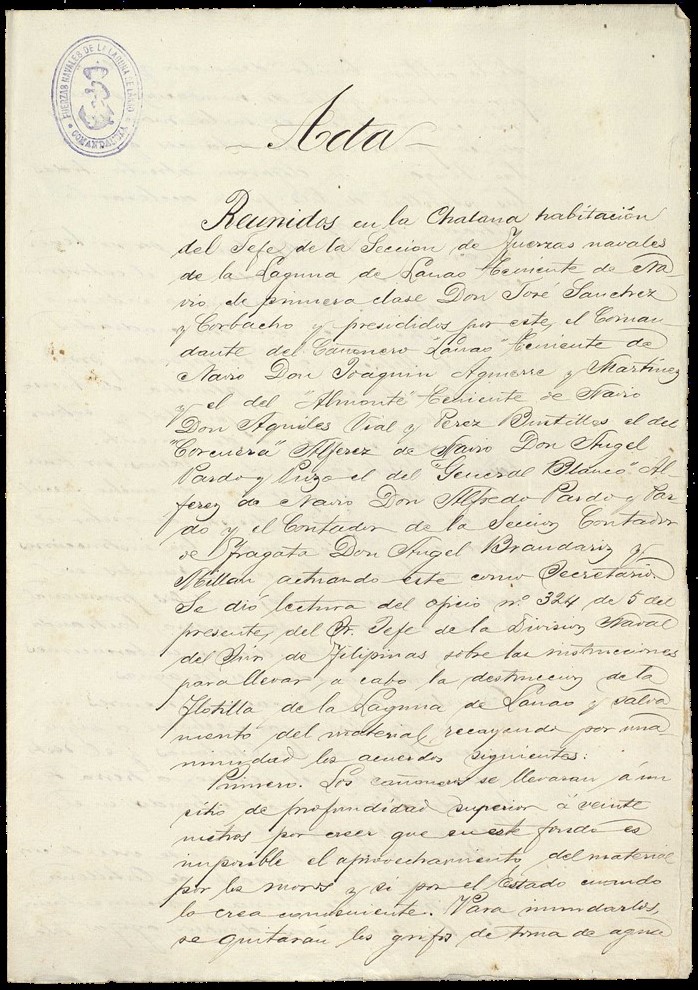 FUERZAS NAVALES DE LA LAGUNA DE LANAO
COMANDANCIA
Acta
Reunidos en la Chalana habitación
del Jefe de la Seccion de Fuerzas navales
de la Laguna de Lanao Teniente de Na-
vio de primera clase Don José Sanchez
y Corbacho y presididos por este, el Coman-
dante del Cañonero "Lanao" Teniente de
Navio Don Joaquin Aguirre y Martínez
y el del "Almonte" Teniente de Navio
Don Aquiles Vial y Perez Bustillos el del
"Corcuera" Alferez de Navio Don Angel
Pardo y Puzo el del "General Blanco" Al-
ferez de Navio Don Alfredo Pardo y Par-
do y el Contador de la Seccion Contador
de Fragata Don Angel Brandariz y
Millan actuando este como Secretario
Se dió lectura del oficio nº 324 de 5 del
presente, del Sr. Jefe de la Division Naval
del Sur de Filipinas sobre las instrucciones
para llevar a cabo la destruccion de la
Flotilla de la Laguna de Lanao y salva-
mento del material, recayendo por una-
nimidad los acuerdos siguientes:
Primero. Los cañoneros se llevaran á un
sitio de profundidad superior á veinte
metros por creer que en este fondo es
imposible el aprovechamiento del material
por los moros y si por el Estado cuando
lo crea conveniente. Para inundarlos,
se quitarán los grifos de toma de agua